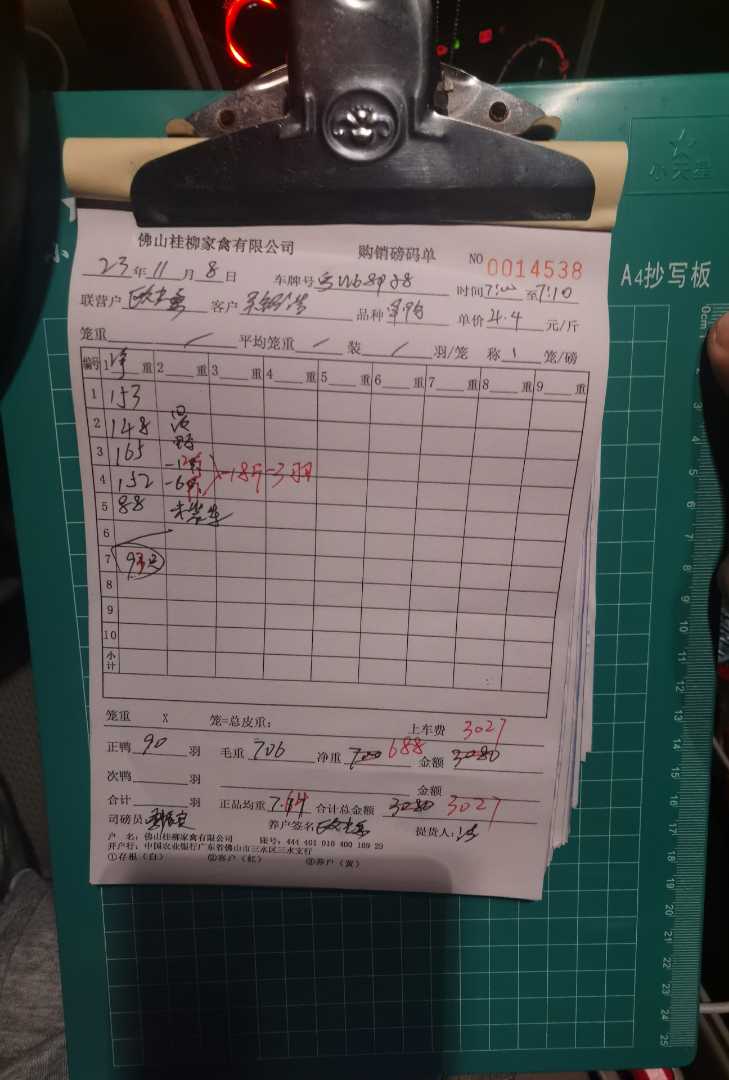 小天星
A4抄写板
佛山桂柳家禽有限公司 购销磅码单 NO 0014538
23年11月8日 车牌号 时间7:00至7:10
联营户 客户 品种 单价4.4元/斤
笼重 / 平均笼重 / 装 / 羽/笼 称 1 笼/磅
编号 1净重 2 重 3 重 4 重 5 重 6 重 7 重 8 重 9 重
1 153
2 148
3 165
4 152 -6斤 -18斤-3羽
5 88 未装车
6
7 93只
8
9
10
小计
笼重 X 笼=总皮重: 上车费 3027
正鸭 90 羽 毛重 706 净重 700 688 金额 3080
次鸭 羽 金额
合计 羽 正品均重 7.64 合计总金额 3080 3027
司磅员 养户签名 提货人:
户 名:佛山桂柳家禽有限公司 账号:444 401 010 400 169 29
开户行:中国农业银行广东省佛山市三水区三水支行
①存根(白) ②客户(红) ③养户(黄)
0cm 1 2 3 4 5 6 7 8 9 10 11 12 13 14 15 16 17 18 19 20 21 22 23 24 25